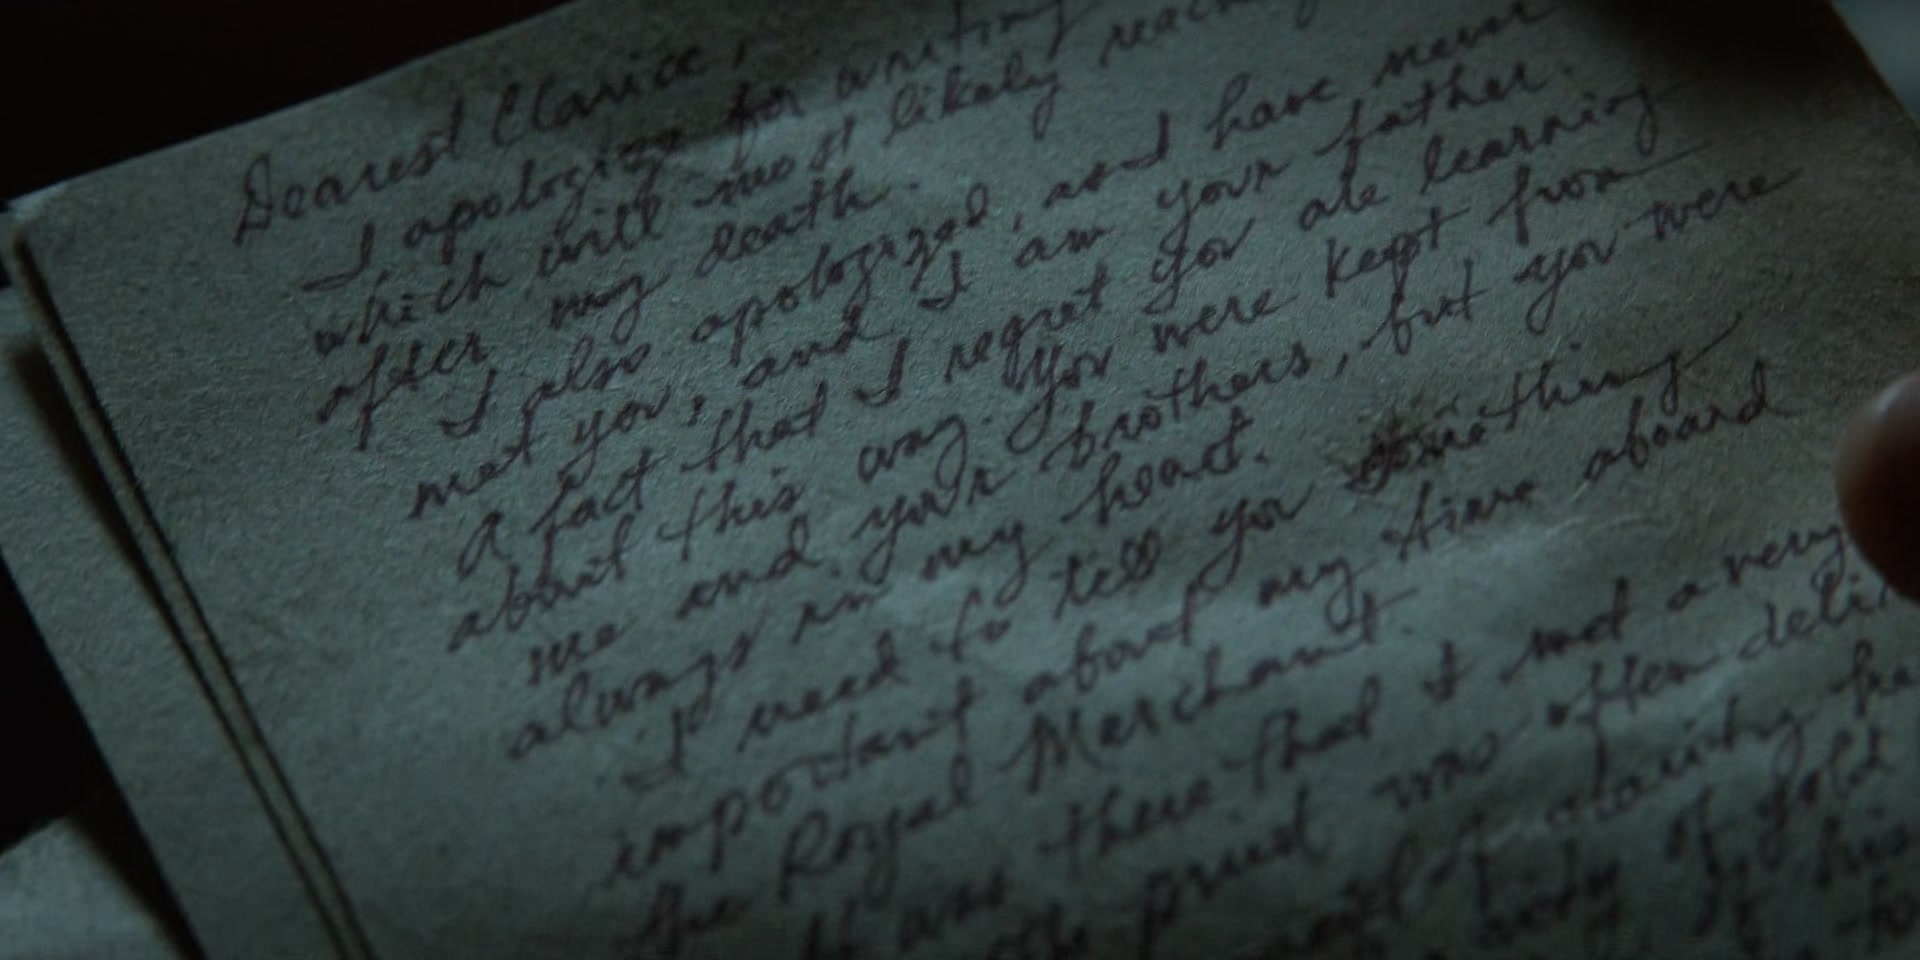 Dearest Clarice,
I apologize for writing
which will most likely reach
after my death.
I also apologized, and have never
met you, and I am your father.
A fact that I regret you are learning
about this way. You were kept from
me and your brothers, but you were
always in my heart.
I need to tell you something
important about my time aboard
the Royal Merchant.
It was there that I met a very
was often
of gold
his